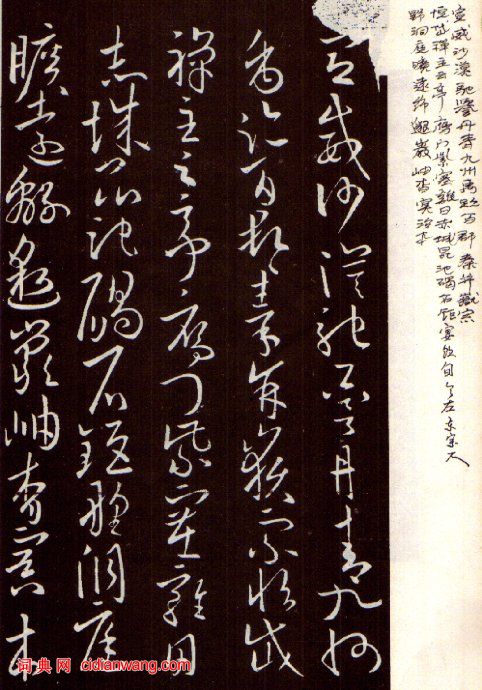 宣威沙漠馳譽丹青九州禹跡百郡秦并嶽宗
恒岱禪主云亭雁門紫塞雞田赤城昆池碣石鉅
野洞庭曠遠綿邈巖岫杳冥治本
宣威沙漠馳譽丹青九州
禹跡百郡秦并嶽宗恒岱
禪主云亭雁門紫塞雞田
赤城昆池碣石鉅野洞庭
曠遠綿邈巖岫杳冥本
词典网 cidianwang.com